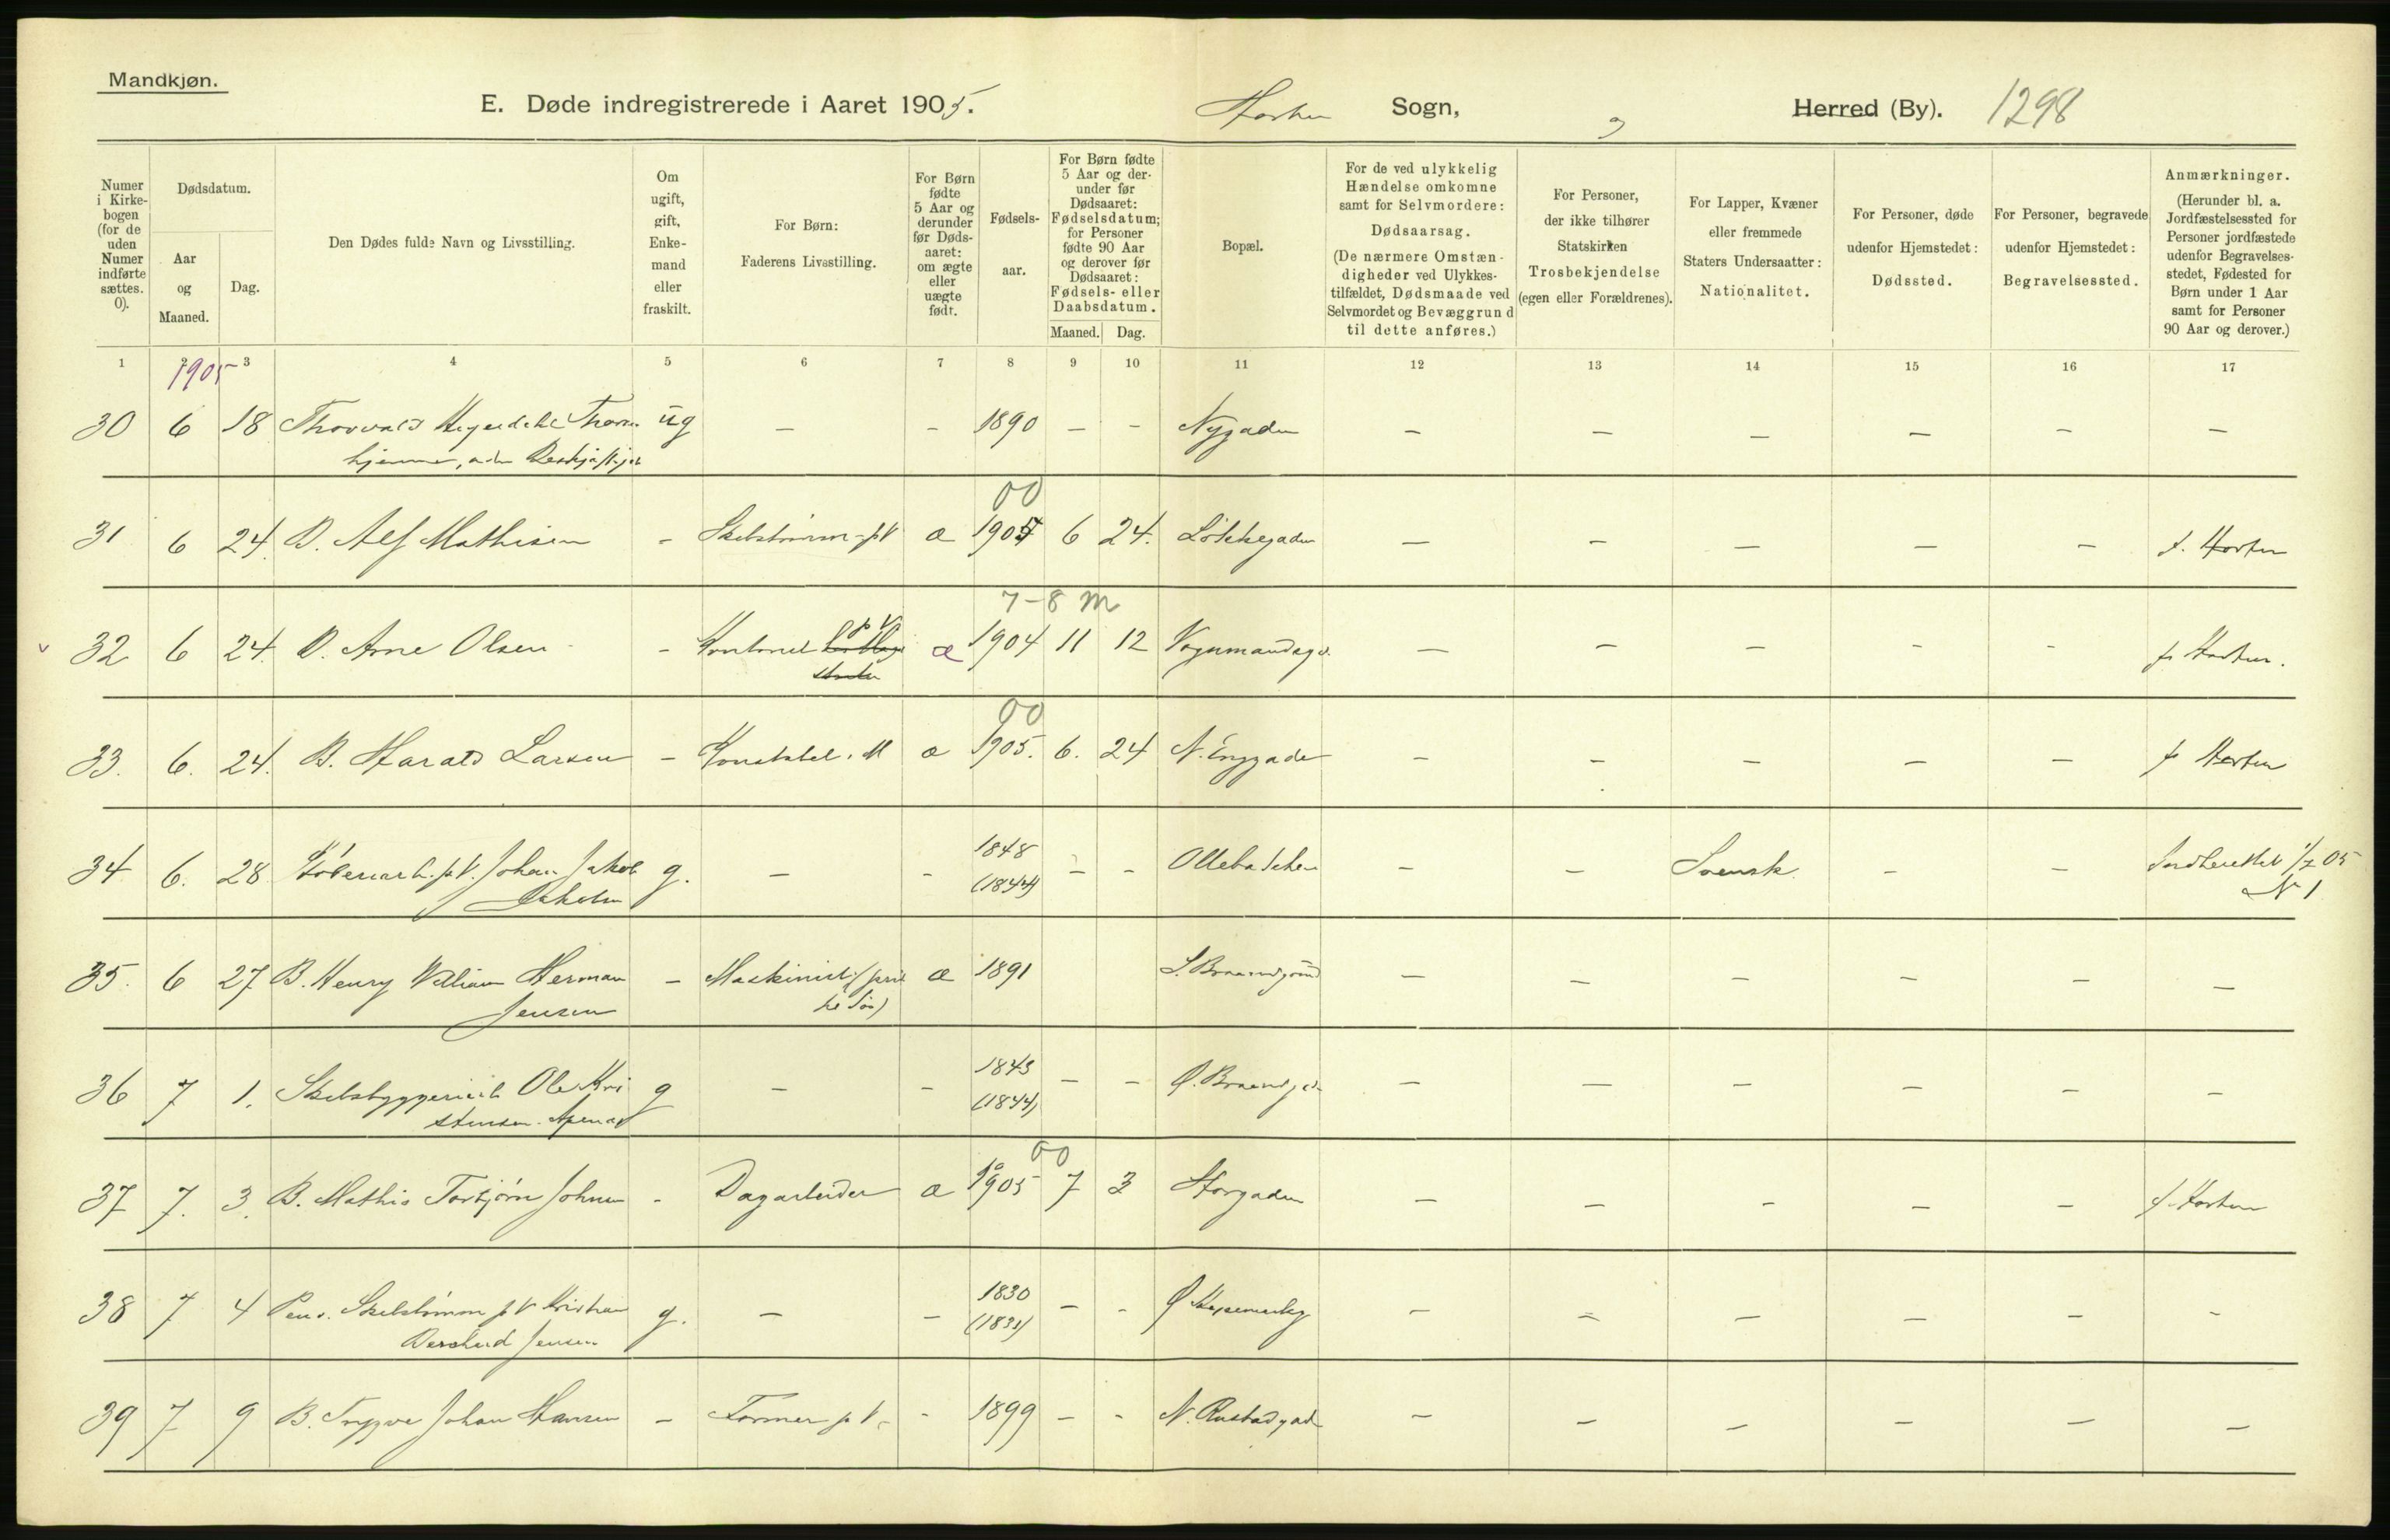 Mandkjøn.
E. Døde indregistrerede i Aaret 1905. Horten Sogn, Herred (By). 1298
Numer i Kirkebogen (for de uden Numer indførte sættes. 0).
Dødsdatum.
Aar og Maaned.
Dag.
Den Dødes fulde Navn og Livsstilling.
Om ugift, gift, Enkemand eller fraskilt.
For Børn: Faderens Livsstilling.
For Børn fødte 5 Aar og derunder før Dødsaaret: om ægte eller uægte født.
Fødselsaar.
For Børn fødte 5 Aar og derunder før Dødsaaret: Fødselsdatum; for Personer fødte 90 Aar og derover før Dødsaaret: Fødsels- eller Daabsdatum.
Maaned. Dag.
Bopæl.
For de ved ulykkelig Hændelse omkomne samt for Selvmordere: Dødsaarsag. (De nærmere Omstændigheder ved Ulykkestilfældet, Dødsmaade ved Selvmordet og Bevæggrund til dette anføres.)
For Personer, der ikke tilhører Statskirken Trosbekjendelse (egen eller Forældrenes).
For Lapper, Kvæner eller fremmede Staters Undersaatter: Nationalitet.
For Personer, døde udenfor Hjemstedet: Dødssted.
For Personer, begravede udenfor Hjemstedet: Begravelsessted.
Anmærkninger. (Herunder bl. a. Jordfæstelsessted for Personer jordfæstede udenfor Begravelsesstedet, Fødested for Børn under 1 Aar samt for Personer 90 Aar og derover.)
1 2 3 4 5 6 7 8 9 10 11 12 13 14 15 16 17
1905
30 6 18 Thorvald ug — - 1890 - - Nygaden — — — — — —
hjemme,
00
31 6 24. B. Alf Mathisen - æ 1905 6 24. Løkkegaden — — — — — f. Horten
7-8 m
32 6 24. B. Arne Olsen - p V æ 1904 11 12 — — — — - f. Horten.
00
33. 6. 24. B. Harald Larsen - æ 1905. 6. 24 N. Enggade — — — — — f. Horten
34 6. 28 p.V. Johan Jakob g. — - 1848 (1844) - - Ollebakken — — Svensk. — — 1/7 05
No 1
35. 6 27 B. Henry William Herman - Maskinist (priv æ 1891 — — — — — —
Jensen
36 7 1. Ole Kri g — - 1843 (1844) - - — — — — — —
stensen
00
37 7. 3. B. Mathis Torbjørn Johnsen - Dagarbeider æ 1905 7 3 Storgaden — — — — — f. Horten
38 7 4 Pens. p V Kristian g. — - 1830 — - — — — — — —
Jensen
39 7 9 B. Trygve Johan Hansen - Former p. V. - 1899 - - N. Rustadgad — — — — — —